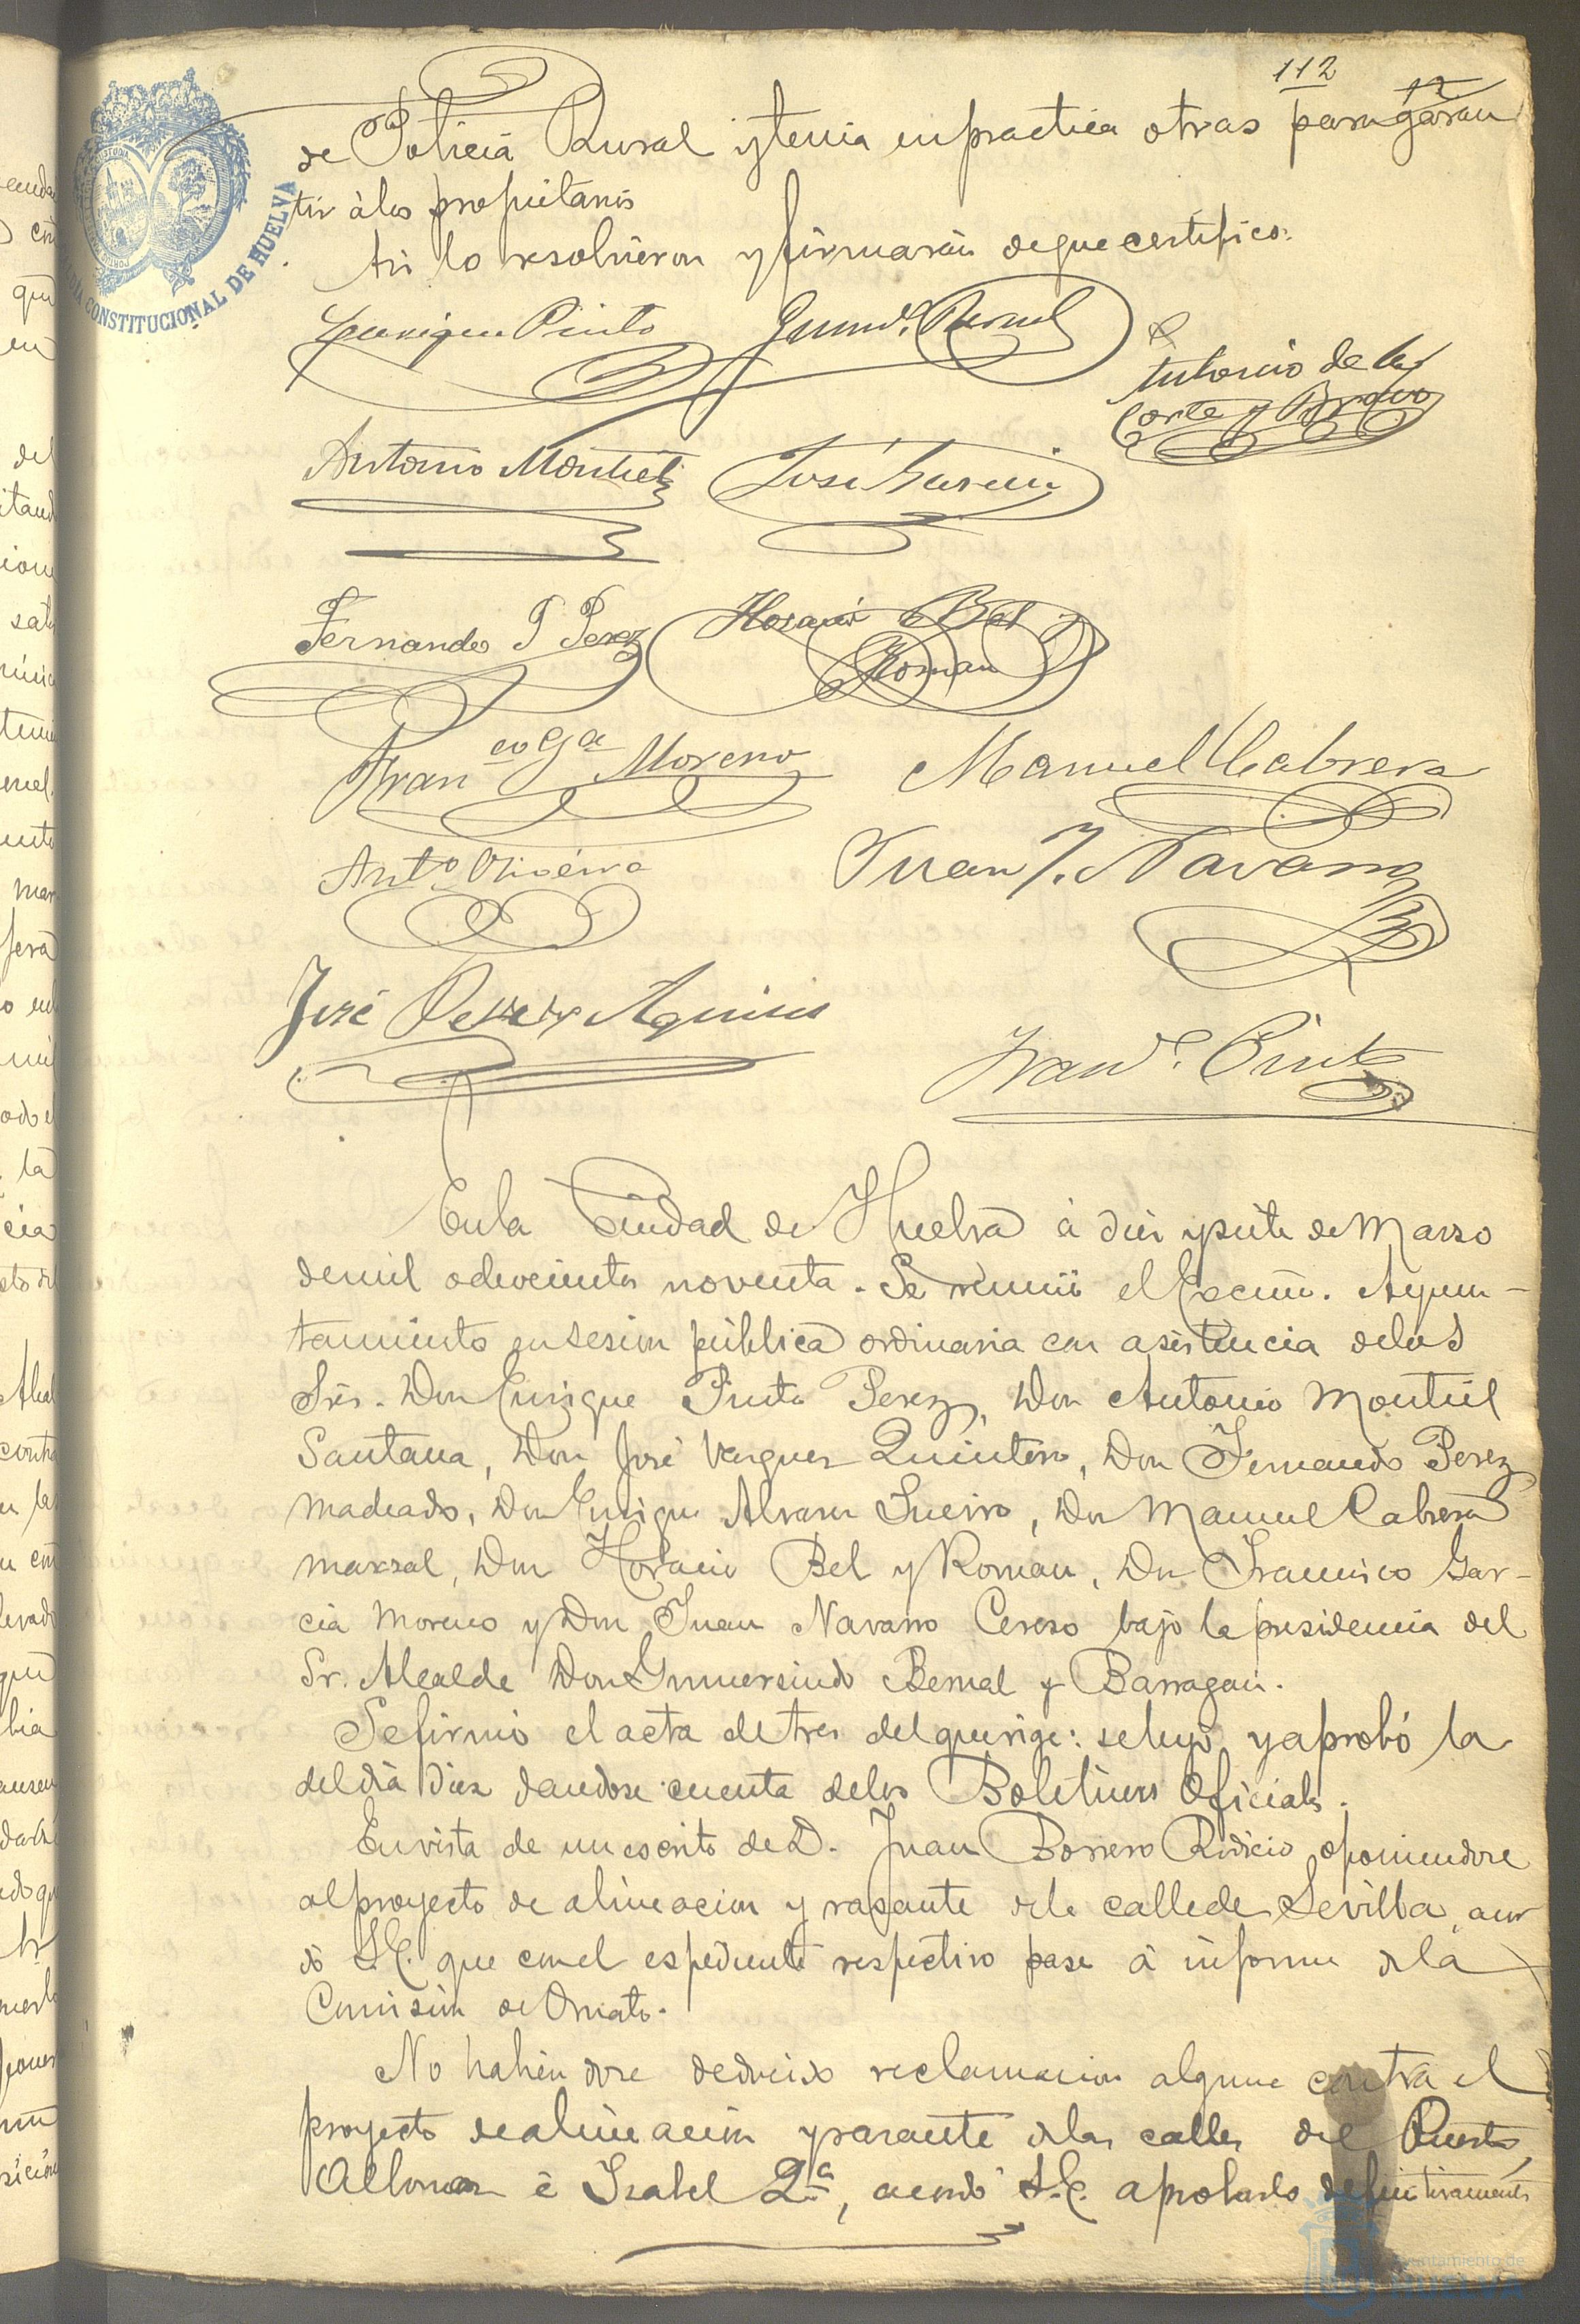 112
12
de Policia Rural y tenia en practica otras para garan
tir á los propietarios
Asi lo resolvieron y firmaran de que certifico.
Enrique Pinto Gumdo. Bernal
Antonio de la
Corte y Bravo
Antonio Montiel José Garcia
Fernando P Perez Horacio Bel y
Roman
Franco Ga Moreno Manuel Cabrera
Anto Oliveira Juan J. Navarro
José
Franco. Pinto
En la Ciudad de Huelva á diez y siete de Marzo
de mil ochocientos noventa. Se reunió el Excmo. Ayun-
tamiento en sesion pública ordinaria con asistencia de los
Srs. Don Enrique Pinto Perez, Don Antonio Montiel
Santana, Don José Vazquez Quintero, Don Fernando Perez
Machado, Don Enrique Alvarez Sueiro, Don Manuel Cabrera
Marzal, Don Horacio Bel y Roman, Don Francisco Gar-
cia Moreno y Don Juan Navarro Cerezo bajo la presidencia del
Sr. Alcalde Don Gumersindo Bernal y Barragan.
Se firmó el acta de tres del que rige: se leyó y aprobó la
del dia diez dandose cuenta de los Boletines Oficiales.
En vista de un escrito de D. Juan Borrero oponiendose
al proyecto de alineacion y rasante de la calle de Sevilla, acor
dó S.E. que con el espediente respectivo pase á informe de la
Comision de Ornato.
No habiendose deducido reclamacion alguna contra el
proyecto de alineación y rasante de las calles del Puerto,
é Isabel 2ª, acordó S.E. aprobarlo definitivamente
CONSTITUCIONAL DE HUELVA
Ayuntamiento de
HUELVA